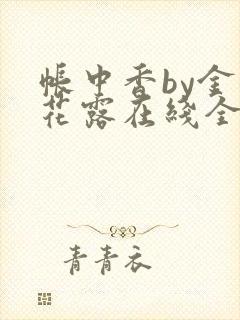 帐中香by金
花露在线全
青青衣